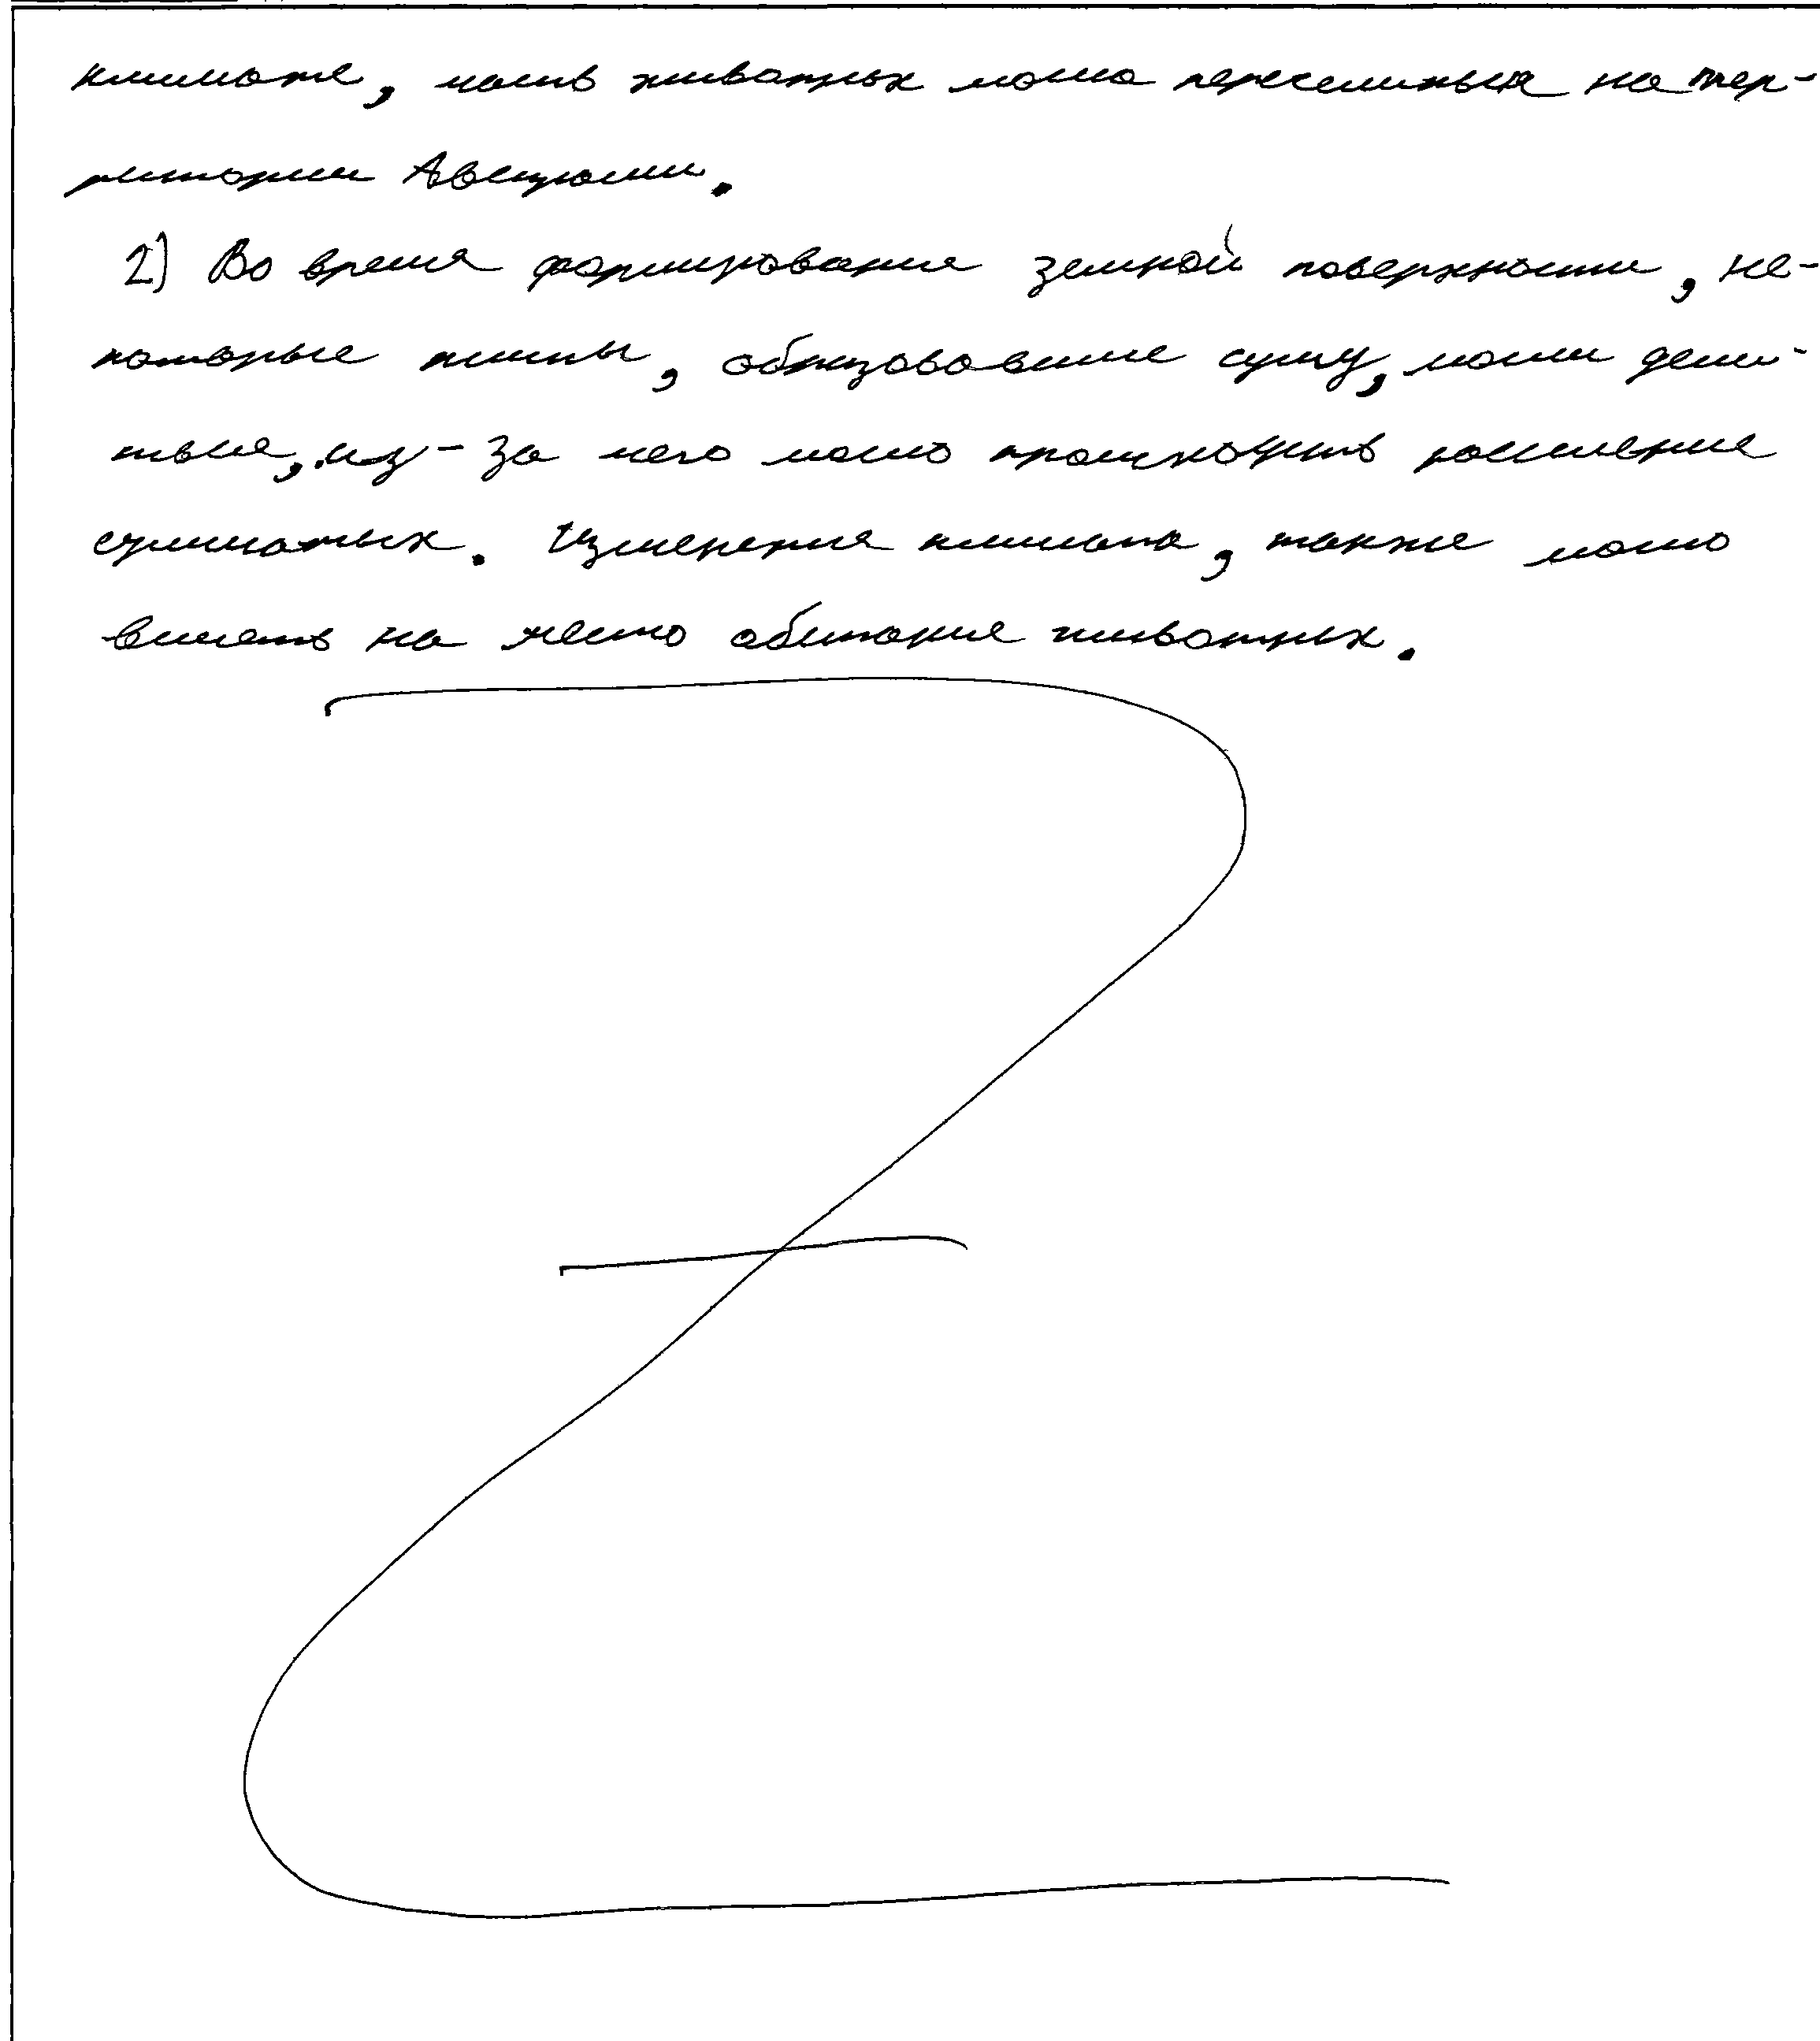 климате, часть животных могла переселиться на тер-
ритории Австралии.
2) Во время формирования земной поверхности, не-
которые плиты, образовавшие сушу, могли дели-
ться, из-за чего могло происходить расселение
сумчатых. Изменения климата, также могло
влиять на место обитание животных.